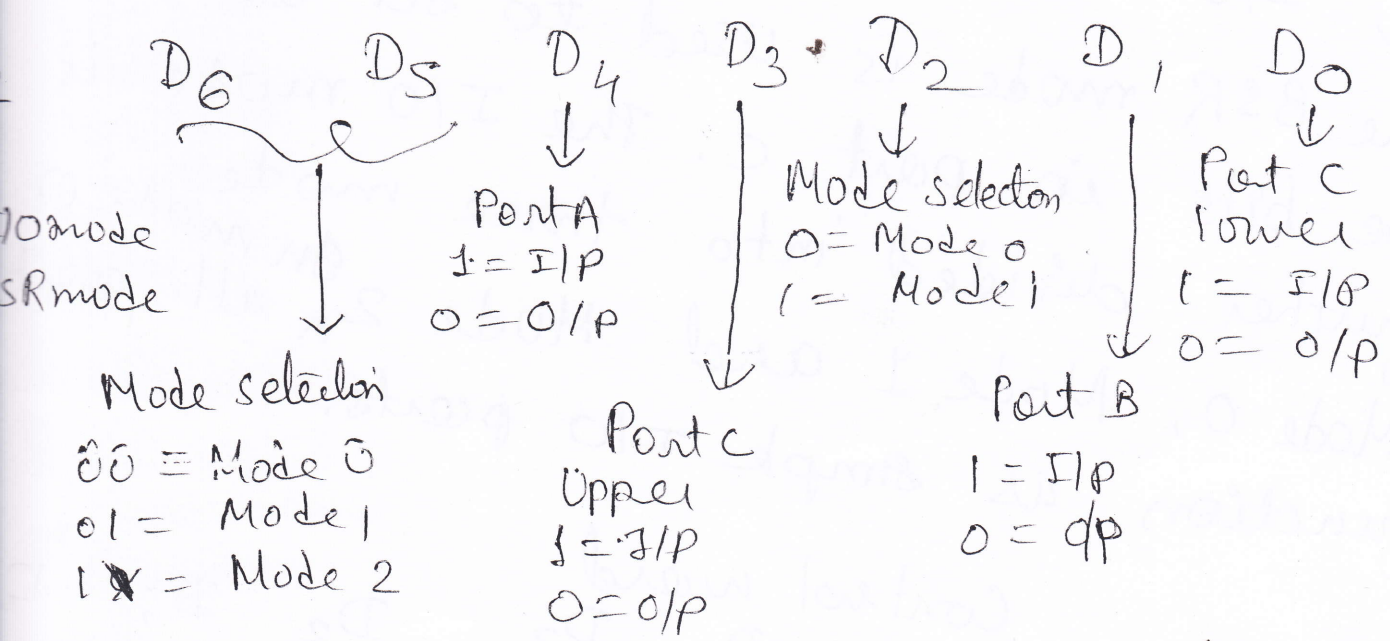 D6 D5 D4 D3 D2 D1 D0
IOmode
SRmode
Mode selection
00 = Mode 0
01 = Mode 1
1X = Mode 2
Port A
1 = I/P
0 = O/P
Port C
Upper
1 = I/P
0 = O/P
Mode selecton
0 = Mode 0
1 = Mode 1
Port B
1 = I/P
0 = O/P
Port C
lower
1 = I/P
0 = O/P